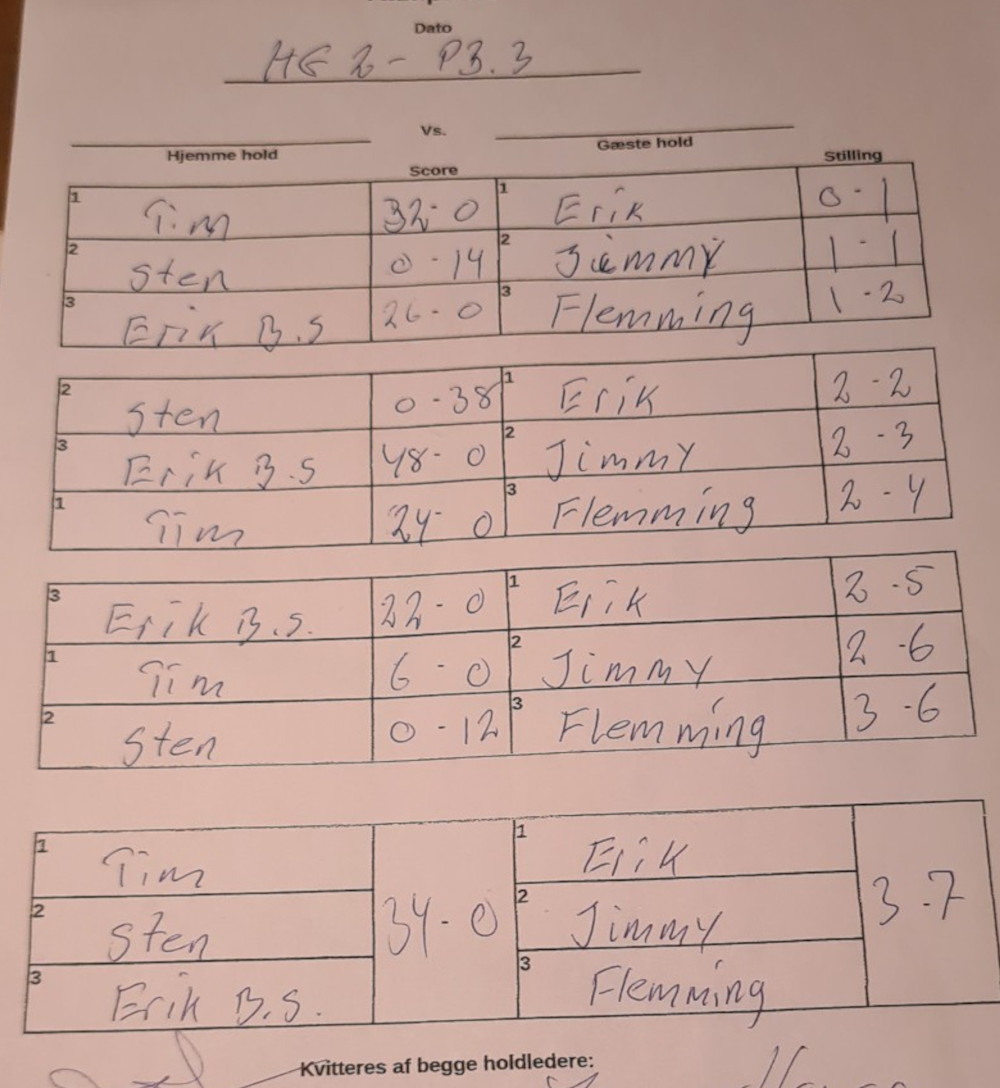 Dato
HG 2 - P3.3
Vs.
Hjemme hold Gæste hold
Score Stilling
1 Tim 32-0 1 Erik 0-1
2 Sten 0-14 2 Jimmy 1-1
3 Erik B.S 26-0 3 Flemming 1-2
2 Sten 0-38 1 Erik 2-2
3 Erik B.S 48-0 2 Jimmy 2-3
1 Tim 24-0 3 Flemming 2-4
3 Erik B.S. 22-0 1 Erik 2-5
1 Tim 6-0 2 Jimmy 2-6
2 Sten 0-12 3 Flemming 3-6
1 Tim 1 Erik
2 Sten 34-0 2 Jimmy 3-7
3 Erik B.S. 3 Flemming
Kvitteres af begge holdledere: